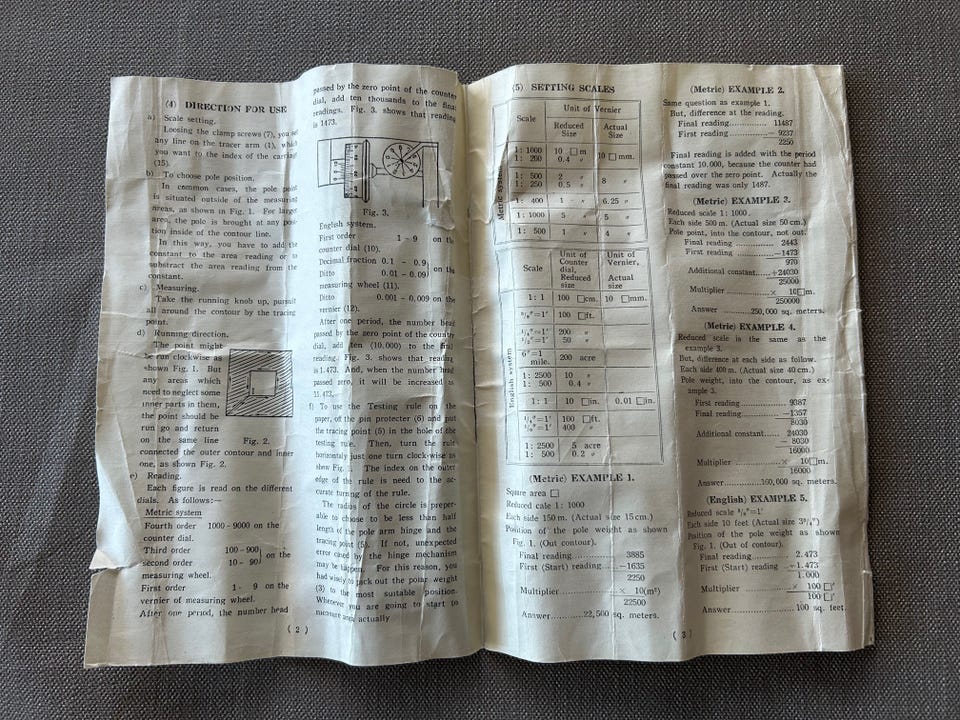 (4) DIRECTION FOR USE
a) Scale setting.
Loosing the clamp screws (7), you set
any line on the tracer arm (1), which
you want to the index of the carriage
(15).
b) To choose pole position.
In common cases, the pole point
is situated outside of the measuring
areas, as shown in Fig. 1. For larger
area, the pole is brought at any posi-
tion inside of the contour line.
In this way, you have to add the
constant to the area reading or to
substract the area reading from the
constant.
c) Measuring.
Take the running knob up, pursuit
all around the contour by the tracing
point.
d) Running direction.
The point might
be run clockwise as
shown Fig. 1. But
any areas which
need to neglect some
inner parts in them,
the point should be
run go and return
on the same line
Fig. 2.
connected the outer contour and inner
one, as shown Fig. 2.
e) Reading.
Each figure is read on the different
dials. As follows:—
Metric system
Fourth order 1000-9000 on the
counter dial.
Third order 100-900
second order 10- 90 on the
measuring wheel.
First order 1- 9 on the
vernier of measuring wheel.
After one period, the number head
( 2 )
passed by the zero point of the counter
dial, add ten thousands to the final
readings. Fig. 3. shows that reading
is 1473.
Fig. 3.
English system.
First order 1 - 9 on the
counter dial (10).
Decimal fraction 0.1 - 0.9
Ditto 0.01 - 0.09 on the
measuring wheel (11).
Ditto 0.001 - 0.009 on the
vernier (12).
After one period, the number head
passed by the zero point of the counter
dial, add ten (10.000) to the final
reading. Fig. 3. shows that reading
is 1.473. And, when the number head
passed zero, it will be increased as
11.473.
f) To use the Testing rule on the
paper, of the pin protecter (6) and put
the tracing point (5) in the hole of the
testing rule. Then, turn the rule
horizontaly just one turn clock-wise as
show Fig. 1. The index on the outer
edge of the rule is need to the ac-
curate turning of the rule.
The radius of the circle is prefer-
able to choose to be less than half
length of the pole arm hinge and the
tracing point (5). If not, unexpected
error caused by the hinge mechanism
may be happen. For this reason, you
had wisely to pick out the polar weight
(3) to the most suitable position.
Whenever you are going to start to
measure area actually
(5) SETTING SCALES
Scale Unit of Vernier
Reduced Size Actual Size
Metric system
1: 1000 10 □ m 10 □ mm.
1: 200 0.4 〃
1: 500 2 〃 8 〃
1: 250 0.5 〃
1: 400 1 〃 6.25 〃
1: 1000 5 〃 5 〃
1: 500 1 〃 4 〃
Scale Unit of Counter dial, Reduced size Unit of Vernier, Actual size
English system
1: 1 100 □cm. 10 □mm.
100 □ft.
200 〃
50 〃
6"=1 mile. 200 acre
1: 2500 10 〃
1: 500 0.4 〃
1: 1 10 □in. 0.01 □in.
100 □ft.
400 〃
1: 2500 5 acre
1: 500 0.2 〃
(Metric) EXAMPLE 1.
Square area □
Reduced cale 1: 1000
Each side 150 m. (Actual size 15 cm.)
Position of the pole weight as shown
Fig. 1. (Out contour).
Final reading 3885
First (Start) reading —1635
2250
Multiplier × 10(m²)
22500
Answer 22,500 sq. meters.
(Metric) EXAMPLE 2.
Same question as example 1.
But, difference at the reading.
Final reading 11487
First reading — 9237
2250
Final reading is added with the period
constant 10.000, because the counter had
passed over the zero point. Actually the
final reading was only 1487.
(Metric) EXAMPLE 3.
Reduced scale 1: 1000.
Each side 500 m. (Actual size 50 cm.)
Pole point, into the contour, not out.
Final reading 2443
First reading —1473
970
Additional constant +24030
25000
Multiplier × 10□m.
250000
Answer 250,000 sq. meters.
(Metric) EXAMPLE 4.
Reduced scale is the same as the
example 3.
But, difference at each side as follow.
Each side 400 m. (Actual size 40 cm.)
Pole weight, into the contour, as ex-
ample 3.
First reading 9387
Final reading —1357
8030
Additional constant 24030
— 8030
16000
Multiplier × 10□m.
16000
Answer 160,000 sq. meters.
(English) EXAMPLE 5.
Reduced scale ³/₈"=1'
Each side 10 feet (Actual size 3³/₄")
Position of the pole weight as shown
Fig. 1. (Out of contour).
Final reading 2.473
First (Start) reading —1.473
1.000
Multiplier × 100 □'
100 □'
Answer 100 sq. feet.
( 3 )